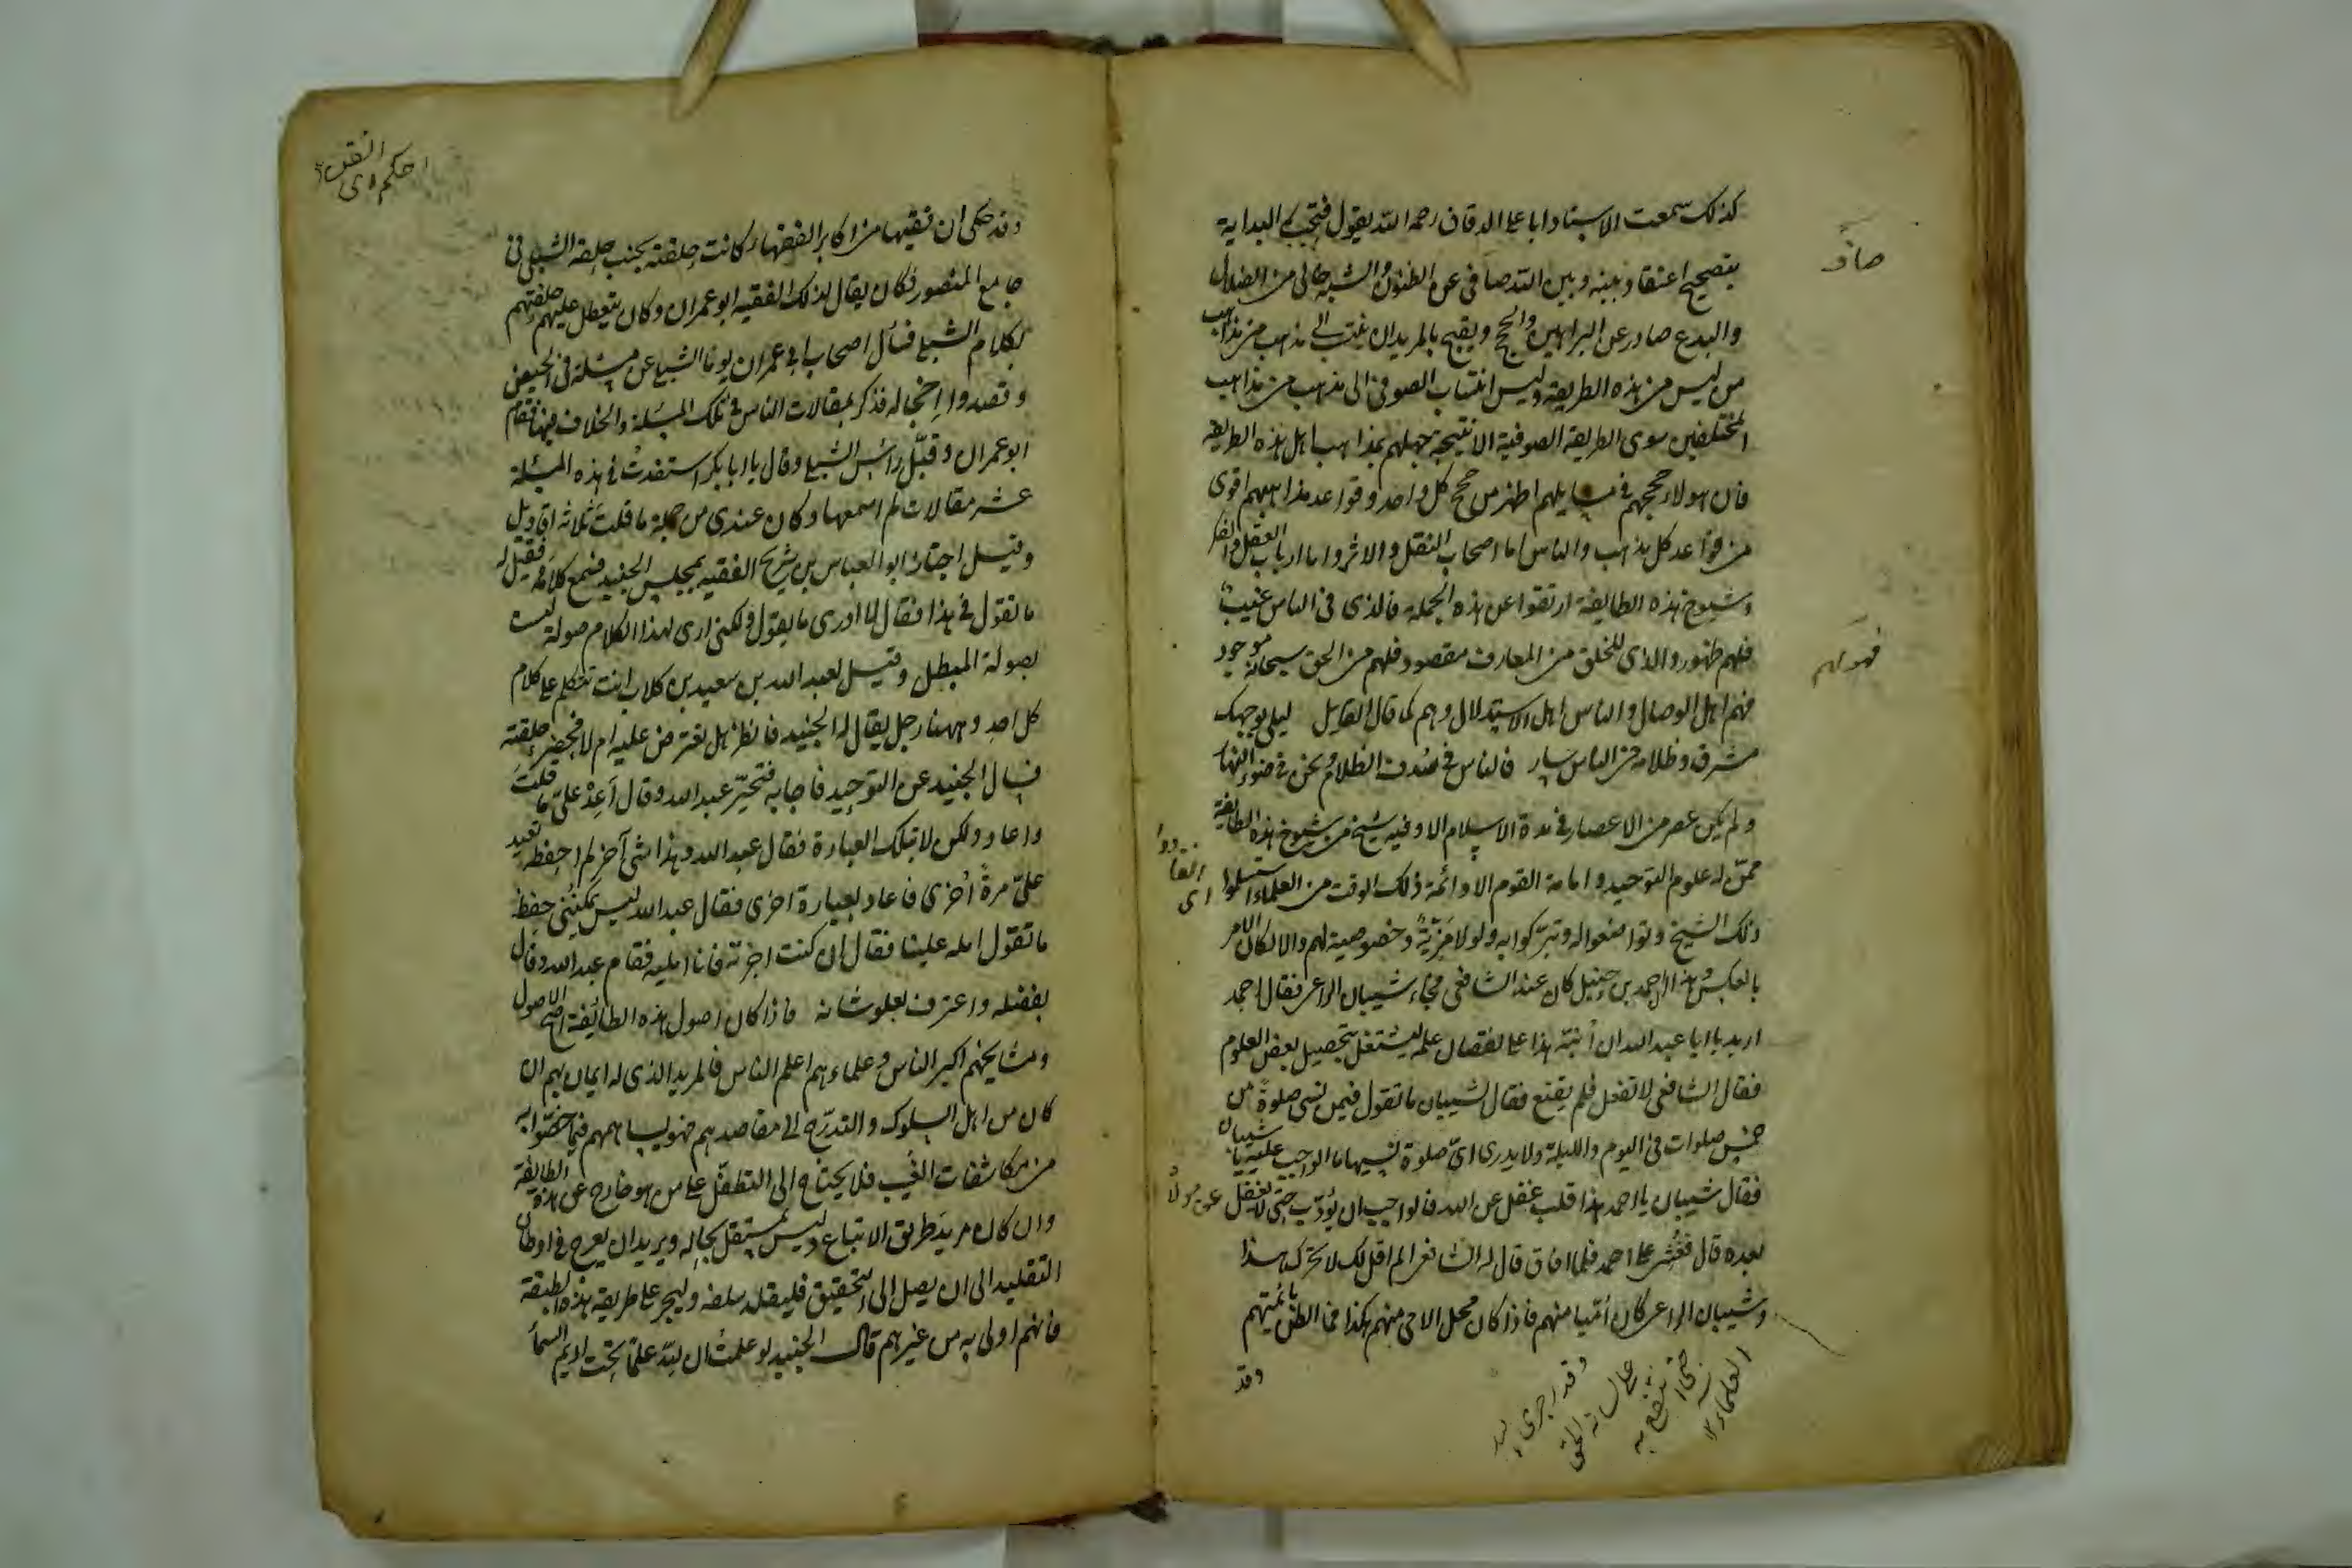 كذلك سمعت الاستاد ابا علي الدقاق رحمه الله يقول فتجب البداية
بتصحيح اعتقاد بينه وبين الله صاف عن الظنون والشبه خالي من الضلال
والبدع صادر عن البراهين والحجج ويقبح بالمريد ان ينتسب الى مذهب من مذاهب
من ليس من هذه الطريقة وليس انتساب الصوفى الى مذهب من مذاهب
المختلفين سوى الطريقة الصوفية الا نتيجة جهلهم بمذاهب اهل هذه الطريقة
فان هولاء حججهم فى مسايلهم اظهر من حجج كل واحد وقواعد مذاهبهم اقوى
من قواعد كل مذهب والناس اما اصحاب النقل والاثر واما ارباب العقل والفكر
وشيوخ هذه الطايفة ارتقوا عن هذه الجملة فالذى فى الناس غيب
فلهم ظهور والذى للخلق من المعارف مقصود فلهم من الحق سبحانه موجود
فهم اهل الوصال والناس اهل الاستدلال وهم كما قال القايل ليلى بوجهك
مشرق وظلامه فى الناس سار فالناس فى سدف الظلام ونحن فى ضوء النهار
ولم يكن عصر من الاعصار فى مدة الاسلام الا وفيه شيخ من شيوخ هذه الطايفة
ممن له علوم التوحيد وامامة القوم الا وائمة ذلك الوقت من العلماء استسلموا
ذلك الشيخ وتواضعوا له وتبركوا به ولولا مزية وخصوصية لهم والا لكان الامر
بالعكس وهذا احمد بن حنبل كان عند الشافعى فجاء شيبان الراعى فقال احمد
اريد يا ابا عبد الله ان انبه هذا على نقصان علمه ليشتغل بتحصيل بعض العلوم
فقال الشافعى لا تفعل فلم يقنع فقال لشيبان ما تقول فيمن نسى صلوة من
خمس صلوات فى اليوم والليلة ولا يدرى اى صلوة نسيها ما الواجب عليه يا شيبان
فقال شيبان يا احمد هذا قلب غفل عن الله فالواجب ان يؤدب حتى لا يغفل عن مولاه
بعده قال فغشى على احمد فلما افاق قال له الشافعى الم اقل لك لا تحرك هذا
وشيبان الراعى كان اميا منهم فاذا كان محل الامى منهم هكذا فما الظن بائمتهم
وقد
صاف
فهو لهم
انقادوا
اى
وقد حكى ان فقيها من اكابر الفقهاء كانت حلقته بجنب حلقة الشبلى فى
جامع المنصور فكان يقال لذلك الفقيه ابو عمران وكان يتعطل عليهم حلقتهم
لكلام الشبلى فسأل اصحاب ابى عمران يوما الشبلى عن مسئلة فى الحيض
وقصدوا اخجاله فذكر مقالات الناس فى تلك المسئلة والخلاف فيها فقام
ابو عمران وقبل رأس الشبلى وقال يا ابا بكر استفدت فى هذه المسئلة
عشر مقالات لم اسمعها وكان عندى من جملة ما قلت ثلاثة اقاويل
وقيل اجتاز ابو العباس بن شريح الفقيه بمجلس الجنيد فسمع كلامه فقيل له
ما تقول فى هذا فقال لا ادرى ما يقول ولكنى ارى لهذا الكلام صولة ليست
بصولة المبطل وقيل لعبد الله بن سعيد بن كلاب انت تتكلم على كلام
كل احد وههنا رجل يقال له الجنيد فانظر هل تعترض عليه ام لا فحضر حلقته
فسال الجنيد عن التوحيد فاجابه فتحير عبد الله وقال أعد على ما قلت
واعاد ولكن لا بتلك العبارة فقال عبد الله وهذا شئ آخر لم احفظه تعيد
على مرة أخرى فاعاد بعبارة اخرى فقال عبد الله ليس يمكننى حفظ
ما تقول امله علينا فقال ان كنت اجزته فانا امليه فقام عبد الله وقال
بفضله واعترف بعلو شانه فاذا كان اصول هذه الطائفة اصح الاصول
ومشايخهم اكبر الناس وعلماءهم اعلم الناس فالمريد الذى له ايمان بهم ان
كان من اهل السلوك والتدرج الى مقاصدهم فهو يساهمهم فيما خصوا به
من مكاشفات الغيب فلا يحتاج الى التطفل على من هو خارج عن هذه الطايفة
وان كان مريد طريق الاتباع وليس بمستقل بحاله ويريد ان يعرج فى اوطان
التقليد الى ان يصل الى التحقيق فليقلد سلفه وليجر على طريقة هذه الطبقة
فانهم اولى به من غيرهم قال الجنيد لو علمت ان لله علما تحت اديم السما